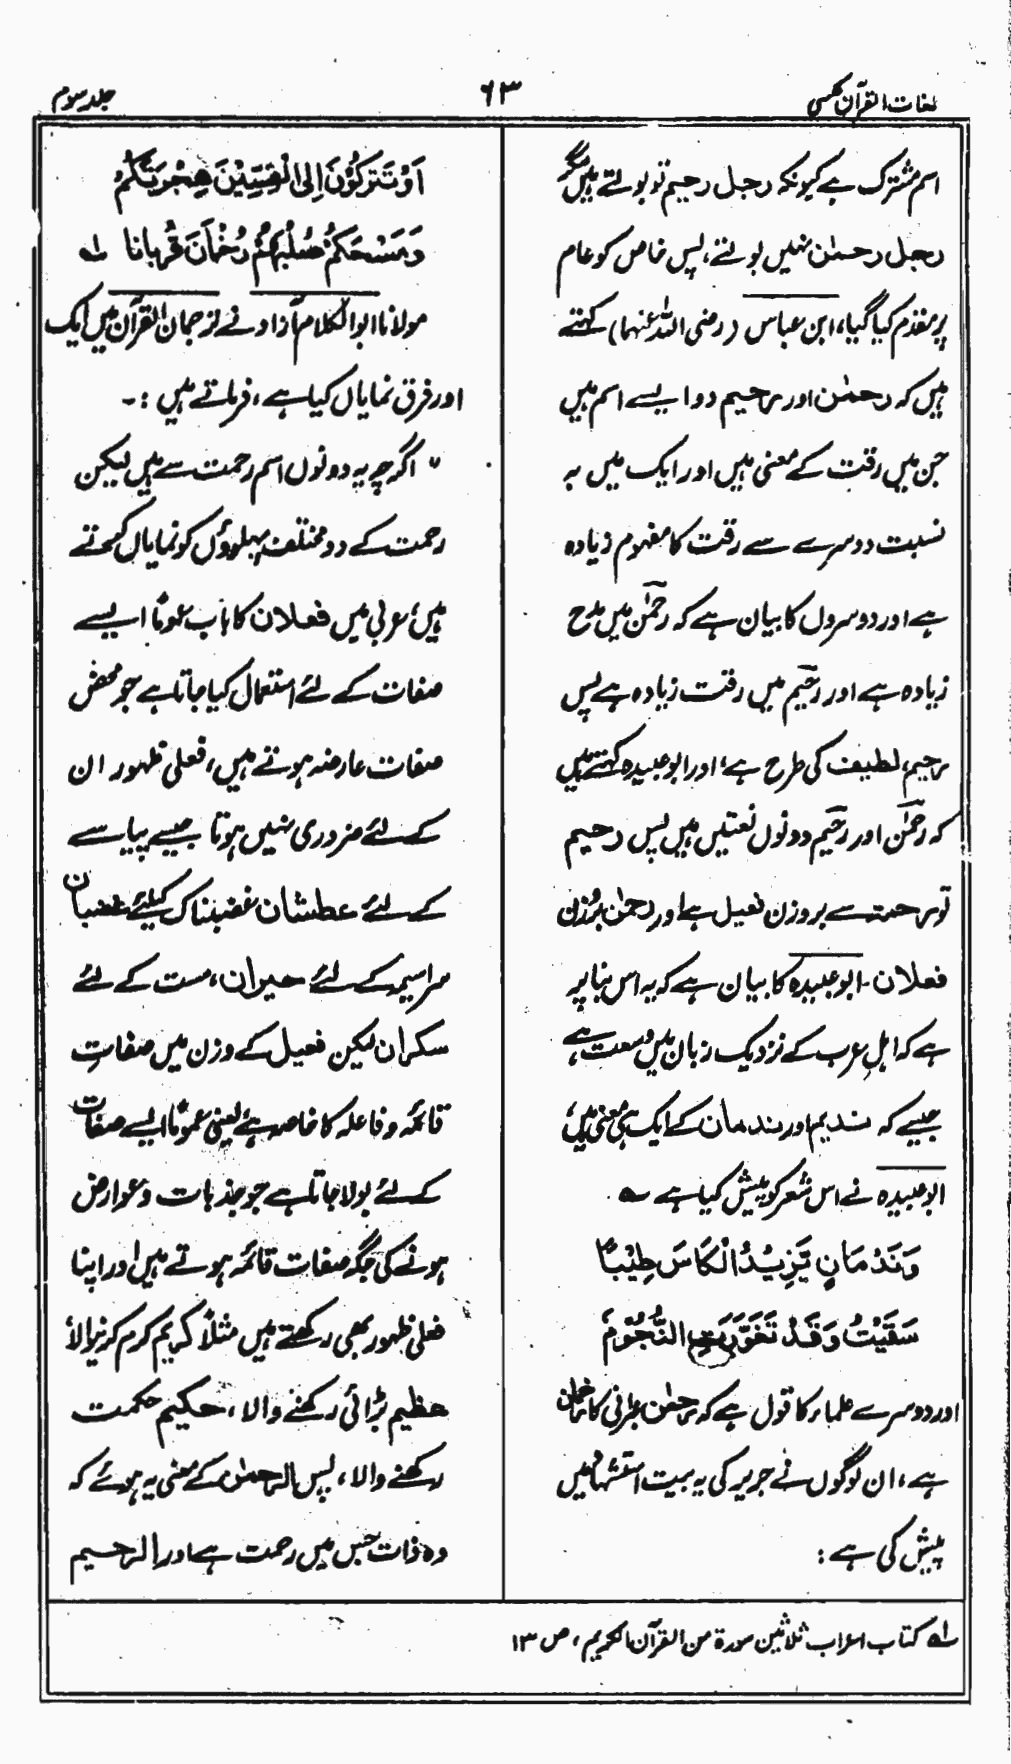 لغات القرآن عکسی
۶۳
جلد سوم
اسم مشترک ہے کیونکہ رجل رحیم تو بولتے ہیں مگر
رجل رحمٰن نہیں بولتے، پس خاص کو عام
پر مقدم کیا گیا، ابن عباس (رضی اللہ عنہما) کہتے
ہیں کہ رحمٰن اور رحیم دو ایسے اسم ہیں
جن میں رقت کے معنی ہیں اور ایک میں بہ
نسبت دوسرے سے رقت کا مفہوم زیادہ
ہے اور دوسروں کا بیان ہے کہ رحمٰن میں مدح
زیادہ ہے اور رحیم میں رقت زیادہ ہے پس
رحیم، لطیف کی طرح ہے؛ اور ابو عبیدہ کہتے ہیں
کہ رحمٰن اور رحیم دونوں نعتیں ہیں پس رحیم
تو رحمۃ سے بروزن فعیل ہے اور رحمٰن بروزن
فعلان - ابو عبیدہ کا بیان ہے کہ یہ اس بنا پر
ہے کہ اہلِ عرب کے نزدیک زبان میں وسعت ہے
جیسے کہ ندیم اور ندمان کے ایک ہی معنی ہیں،
ابو عبیدہ نے اس شعر کو پیش کیا ہے ؎
وَنَدْمَانٍ يَّزِيْدُ الْكَاسَ طِيْبًا
سَقَيْتُ وَقَدْ تَغَوَّرَتِ النُّجُوْمُ
اور دوسرے علماء کا قول ہے کہ رحمٰن عبرانی کا رخمان
ہے، ان لوگوں نے جریر کی یہ بیت استشہاد میں
پیش کی ہے :
اَوْ تَتْرُكُوْنَ اِلَى الْقِسِّيْنَ هِجْرَتَكُمْ
وَمَسْحَكُمْ صُلْبَهُمْ رُخْمَانَ قُرْبَانَا ؎۱
مولانا ابو الکلام آزاد نے ترجمان القرآن میں ایک
اور فرق نمایاں کیا ہے، فرماتے ہیں :۔
" اگرچہ یہ دونوں اسم رحمت سے ہیں لیکن
رحمت کے دو مختلف پہلوؤں کو نمایاں کرتے
ہیں، عربی میں فعلان کا باب عموماً ایسے
صفات کے لئے استعمال کیا جاتا ہے جو محض
صفات عارضہ ہوتے ہیں، فعلی ظہور ان
کے لئے ضروری نہیں ہوتا جیسے پیاسے
کے لئے عطشان غضبناک کیلئے غضبان
سراسیمہ کے لئے حیران، مست کے لئے
سکران لیکن فعیل کے وزن میں صفاتِ
قائمہ و فاعلہ کا خاصہ ہے یعنی عموماً ایسے صفات
کے لئے بولا جاتا ہے جو جذبات و عوارض
ہونے کی جگہ صفات قائمہ ہوتے ہیں اور اپنا
فعلی ظہور بھی رکھتے ہیں مثلاً کریم کرم کرنیوالا
عظیم بڑائی رکھنے والا، حکیم حکمت
رکھنے والا، پس الرحمٰن کے معنی یہ ہوئے کہ
وہ ذات جس میں رحمت ہے اور الرحیم
؎۱ کتاب اعراب ثلاثین سورۃ من القرآن الکریم، ص ۱۳